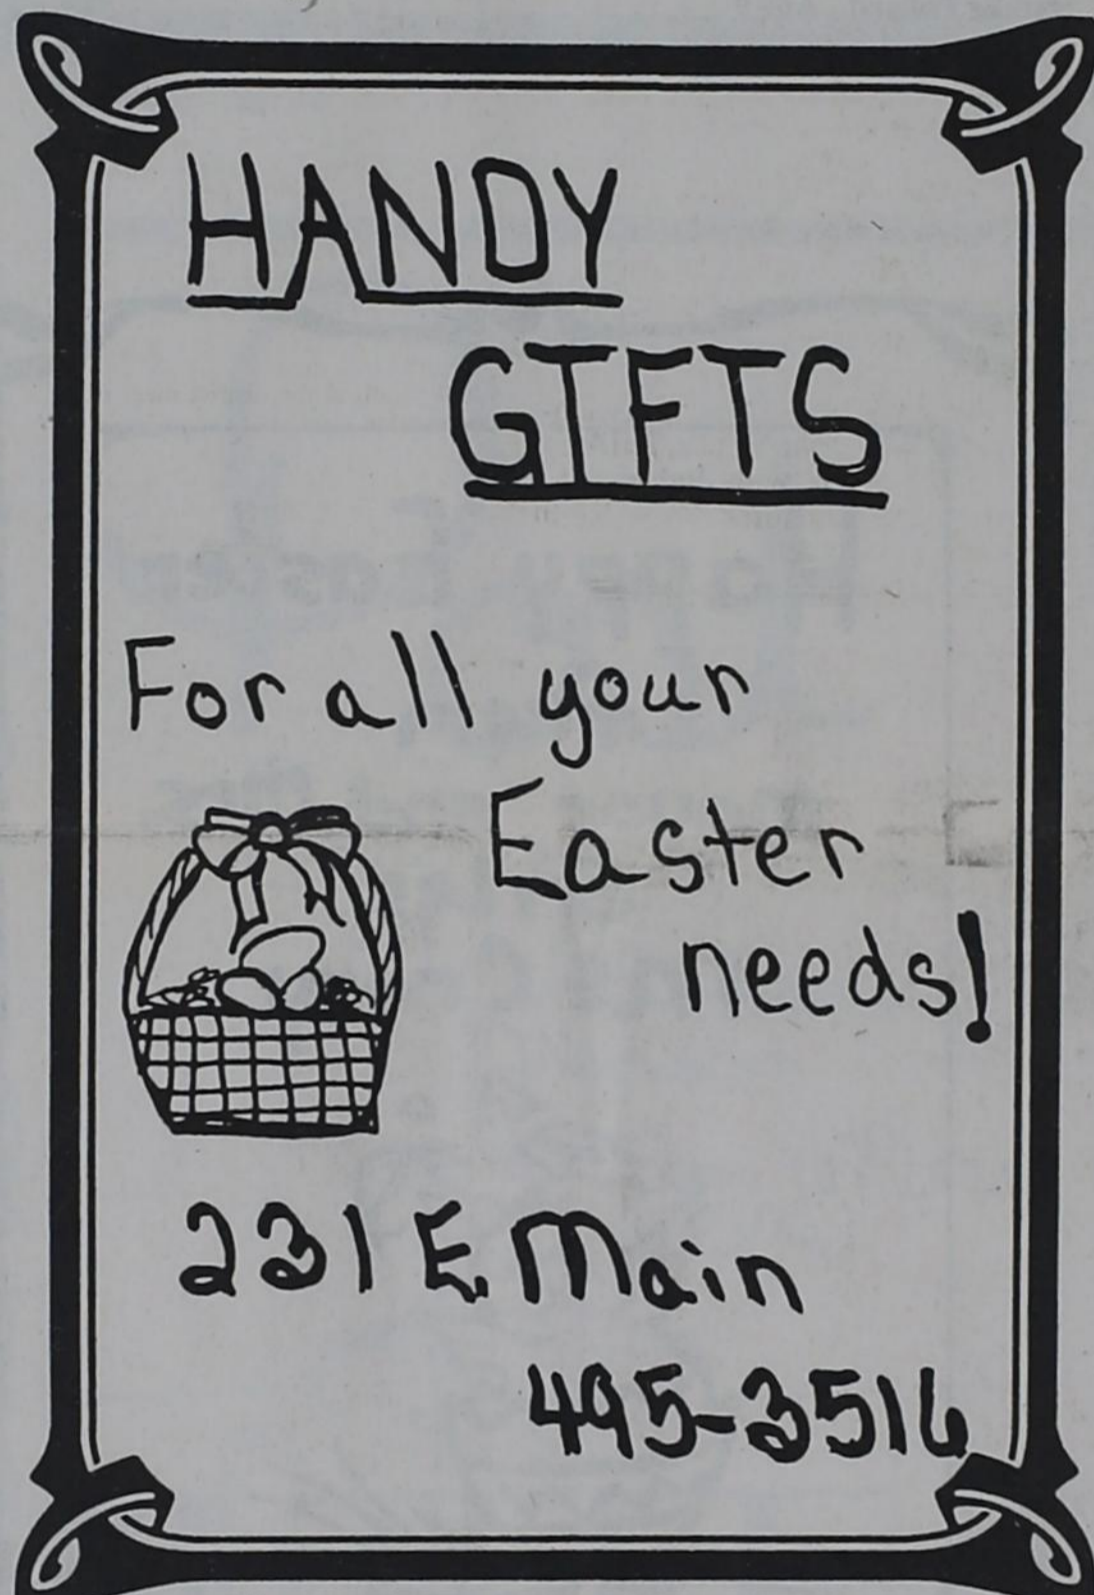 HANDY
GIFTS
For all your
Easter
needs!
231 E. Main
495-3516